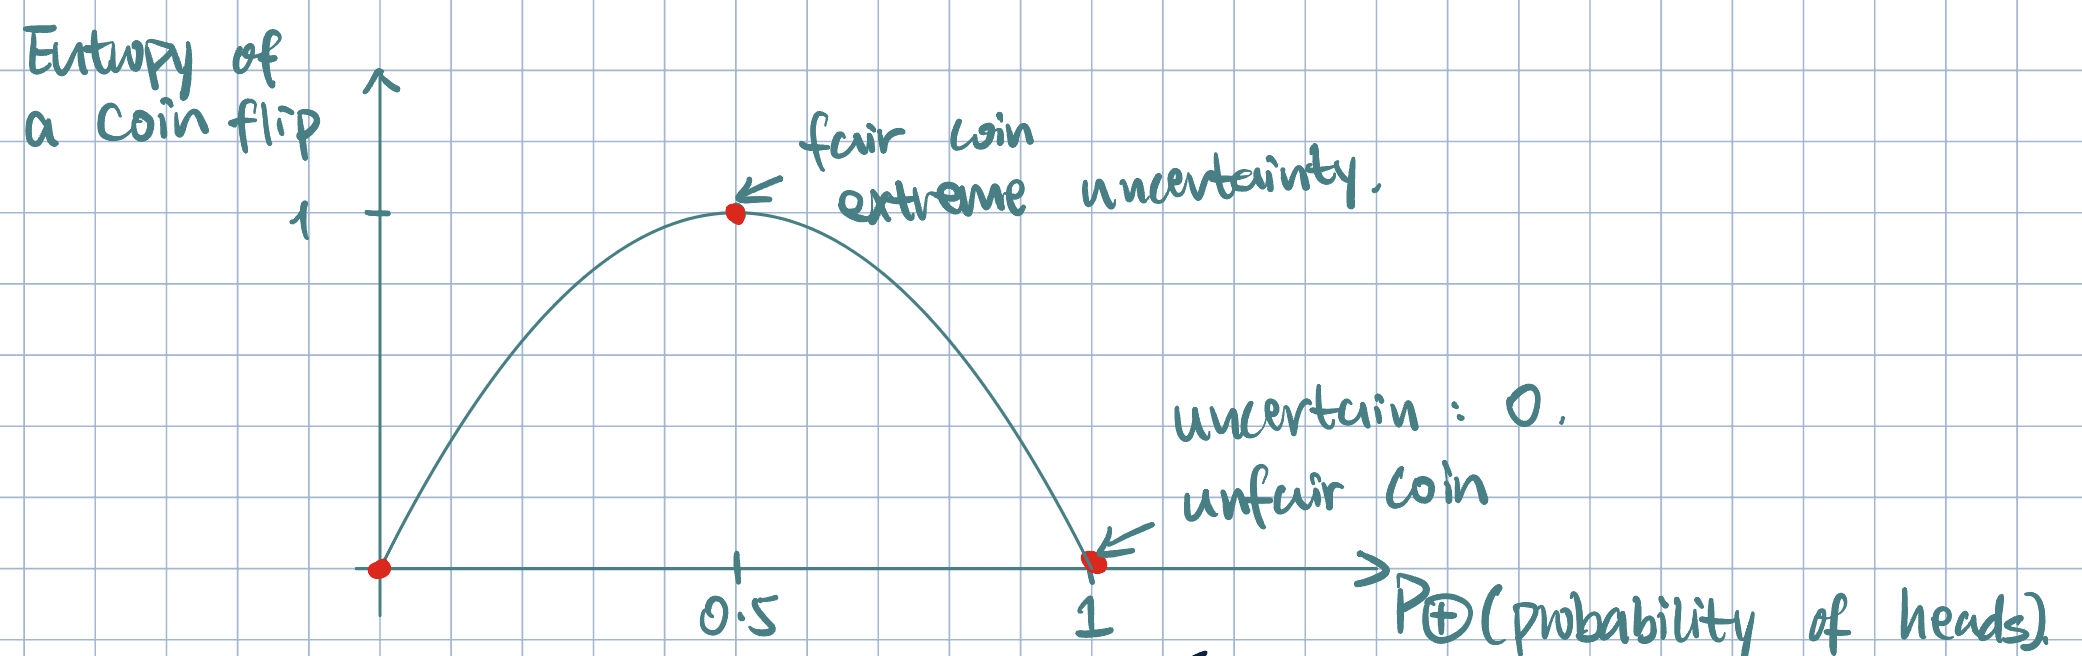 Entropy of
a coin flip
fair coin
extreme uncertainty.
1
uncertain : 0.
unfair coin
0.5
1
P⊕ (probability of heads)